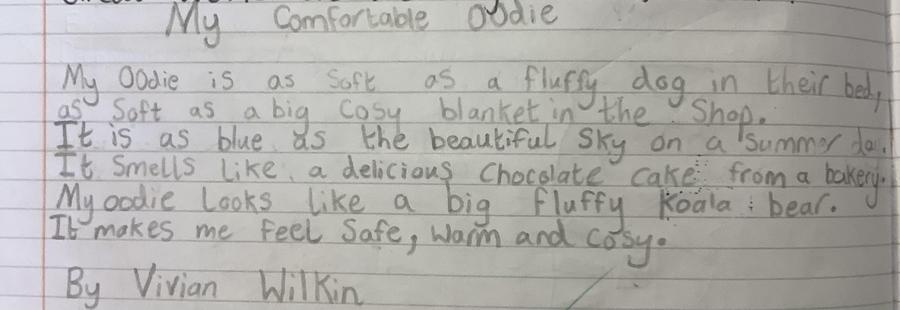 My Comfortable Oodie
My Oodie is as Soft as a fluffy dog in their bed,
as Soft as a big Cosy blanket in the Shop.
It is as blue as the beautiful Sky on a Summer
It Smells Like a delicious Chocolate cake from a bakery.
My oodie Looks like a big fluffy Koala bear.
It makes me feel Safe, warm and cosy.
By Vivian Wilkin